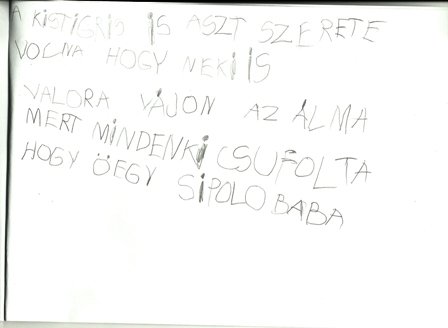 A KISTIGRIS IS ASZT SZERETE
VOLNA HOGY NEKI IS
VALORA VÁJON AZ ÁLMA
MERT MINDENKI CSUFOLTA
HOGY ÖEGY SIPOLO BABA